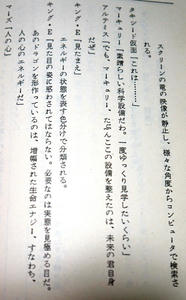 スクリーンの竜の映像が静止し、様々な角度からコンピュータで検索さ
れる。
タキシード仮面「これは………」
マーキュリー「素晴らしい科学設備だわ。一度ゆっくり見学したいくらい」
アルテミス「でも、マーキュリー、たぶんここの設備を整えたのは、未来の君自身
だぜ」
キング・E「見たまえ」
エネルギーの状態を表す色分けで分類される。
キング・E「見た目の姿に惑わされてはならない。必要なのは実態を見極める目だ。
あのドラゴンを形作っているのは、増幅された生命エナジー、すなわち、
人の心のエネルギーだ」
マーズ「人の心」